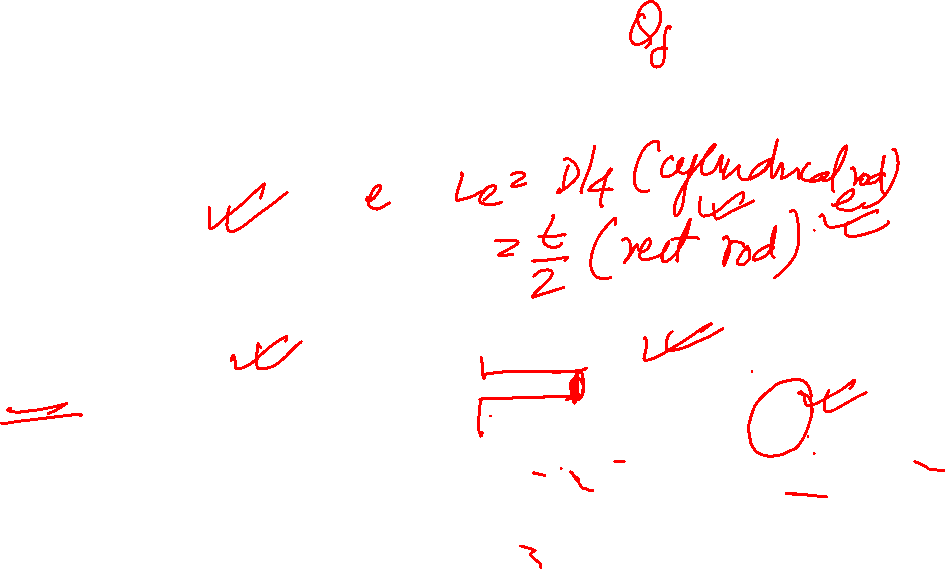 Qf
e Le = D/4 (cylindrical rod)
= t/2 (rect rod).